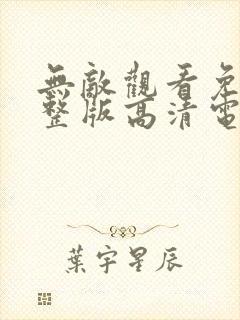 無敵觀看免
整版高清電
葉宇星辰